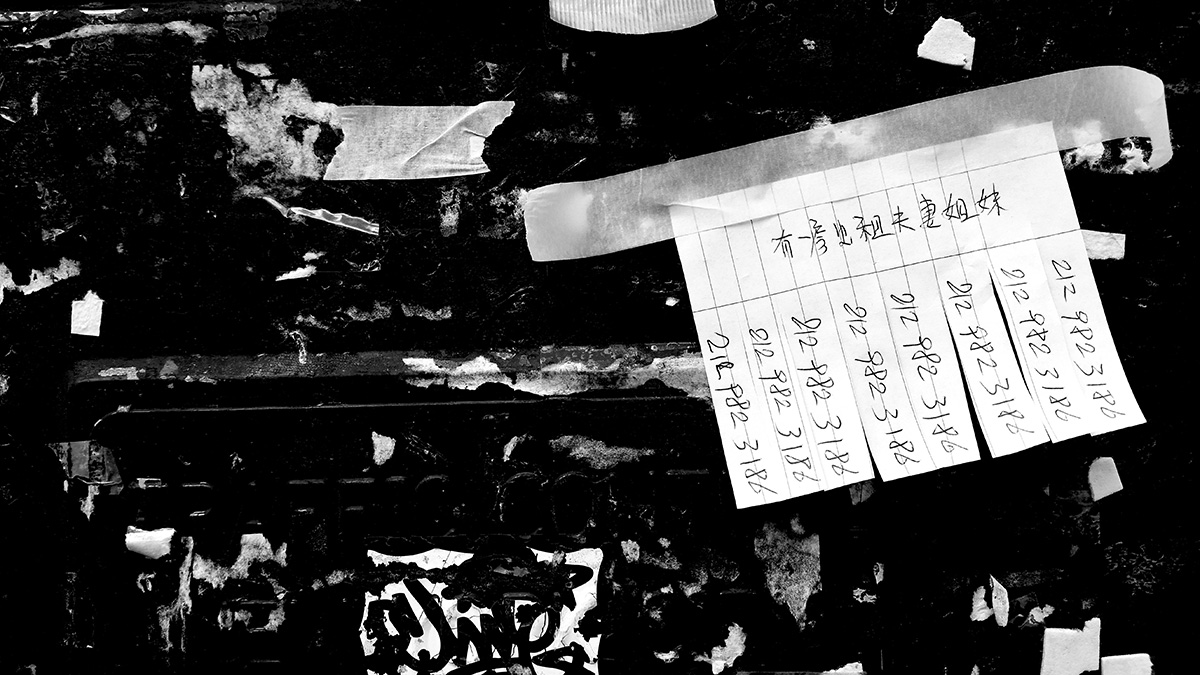 有一房出租夫妻姐妹
212 982 3186
212 982 3186
212 982 3186
212 982 3186
212 982 3186
212 982 3186
212 982 3186
212 982 3186